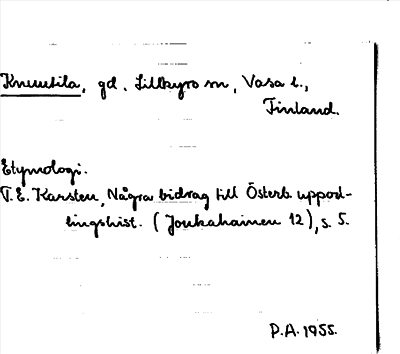 Knuutila, gd, Lillkyro sn, Vasa l.,
Finland.
Etymologi.
T.E. Karsten, Några bidrag till Österb. uppod-
lingshist. (Joukahainen 12), s. 5.
P.A. 1955.